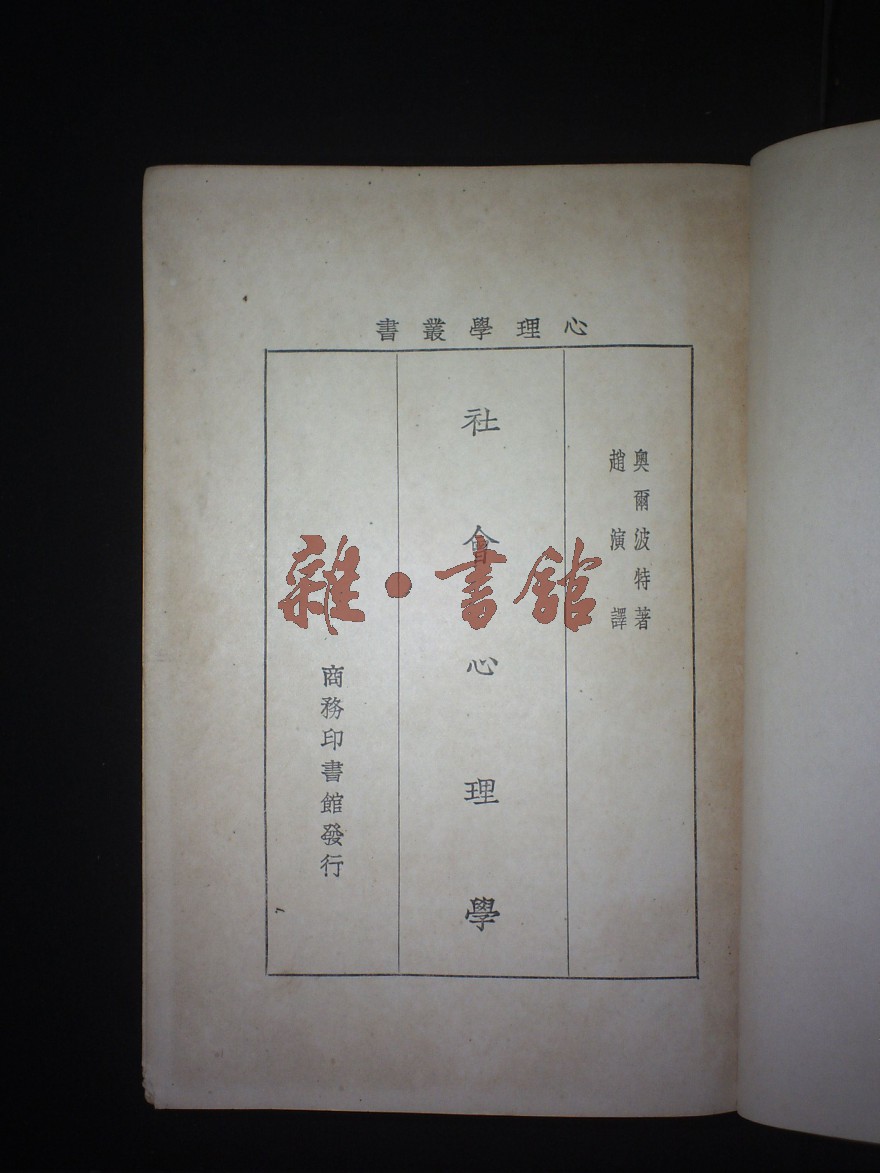 心理學叢書
奧爾波特著
趙演譯
社會心理學
商務印書館發行
雜·書館